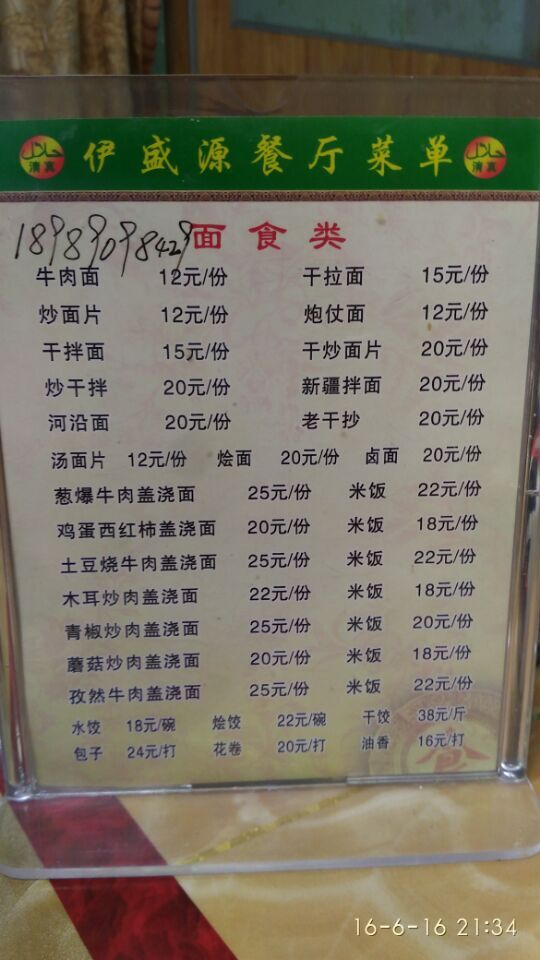 حلال 清真 伊盛源餐厅菜单 حلال 清真
18989098429 面食类
牛肉面 12元/份 干拉面 15元/份
炒面片 12元/份 炮仗面 12元/份
干拌面 15元/份 干炒面片 20元/份
炒干拌 20元/份 新疆拌面 20元/份
河沿面 20元/份 老干抄 20元/份
汤面片 12元/份 烩面 20元/份 卤面 20元/份
葱爆牛肉盖浇面 25元/份 米饭 22元/份
鸡蛋西红柿盖浇面 20元/份 米饭 18元/份
土豆烧牛肉盖浇面 25元/份 米饭 22元/份
木耳炒肉盖浇面 22元/份 米饭 18元/份
青椒炒肉盖浇面 25元/份 米饭 20元/份
蘑菇炒肉盖浇面 20元/份 米饭 18元/份
孜然牛肉盖浇面 25元/份 米饭 22元/份
水饺 18元/碗 烩饺 22元/碗 干饺 38元/斤
包子 24元/打 花卷 20元/打 油香 16元/打
16-6-16 21:34